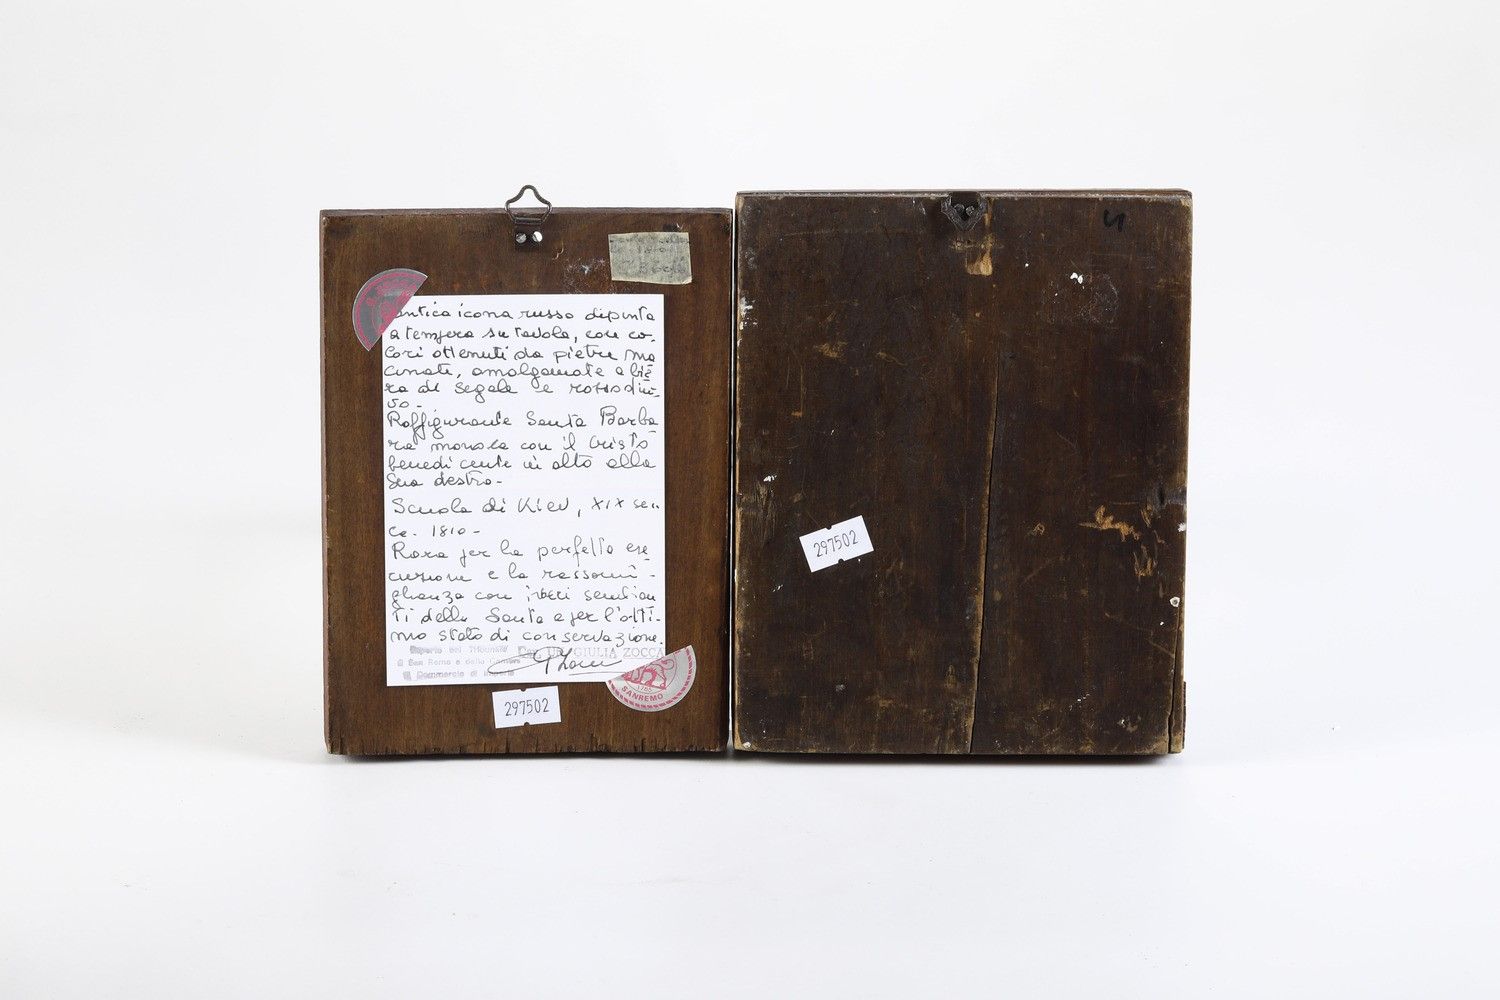 antica icona russa dipinta
a tempera su tavola, con co-
lori ottenuti da pietre ma
cinate, amalgamate a bir
ra di segale e rosso d'uo-
vo-
Raffigurante Santa Barba
ra monaca con il Cristo
benedicente in alto alla
sua destra-
Scuola di Kiev, XIX sec.
ca. 1810-
Rara per la perfetta ese
cuzione e la rassomi-
glianza con i veri sembian
ti della Santa e per l'otti-
mo stato di conservazione.
Esperto del Tribunale
di San Remo e della Camera
di Commercio di Imperia
Cav. Uff. GIULIA ZOCCA
SANREMO
297502
297502